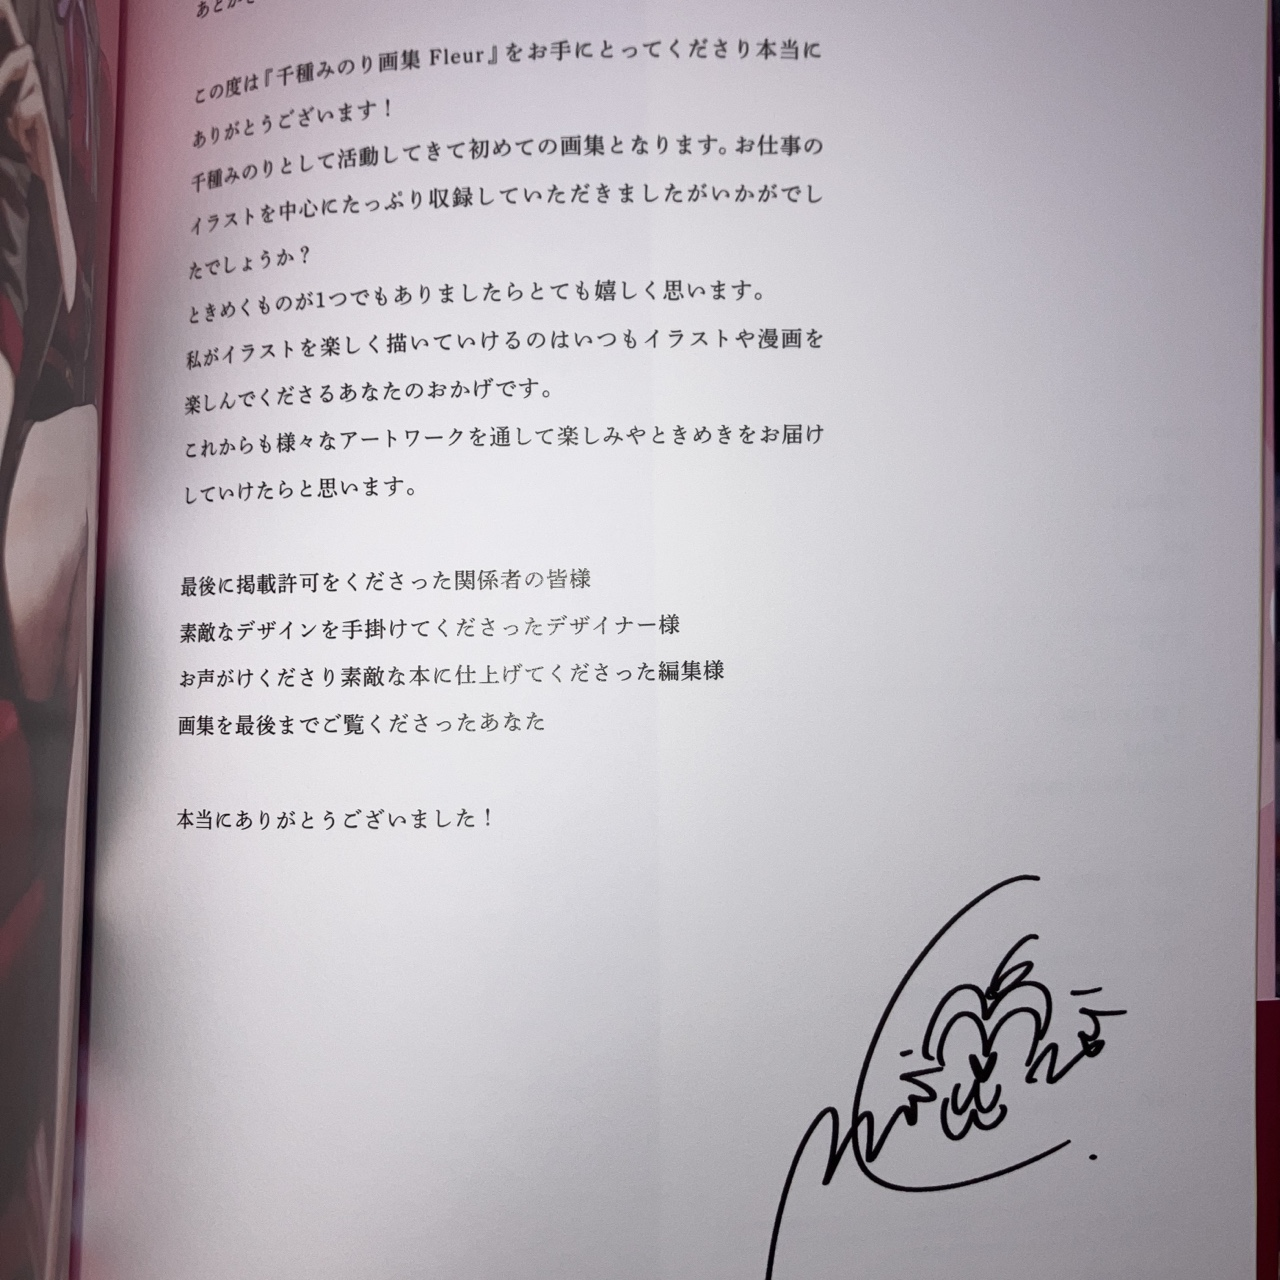 あとがき
この度は『千種みのり画集 Fleur』をお手にとってくださり本当に
ありがとうございます！
千種みのりとして活動してきて初めての画集となります。お仕事の
イラストを中心にたっぷり収録していただきましたがいかがでし
たでしょうか？
ときめくものが1つでもありましたらとても嬉しく思います。
私がイラストを楽しく描いていけるのはいつもイラストや漫画を
楽しんでくださるあなたのおかげです。
これからも様々なアートワークを通して楽しみやときめきをお届け
していけたらと思います。
最後に掲載許可をくださった関係者の皆様
素敵なデザインを手掛けてくださったデザイナー様
お声がけくださり素敵な本に仕上げてくださった編集様
画集を最後までご覧くださったあなた
本当にありがとうございました！